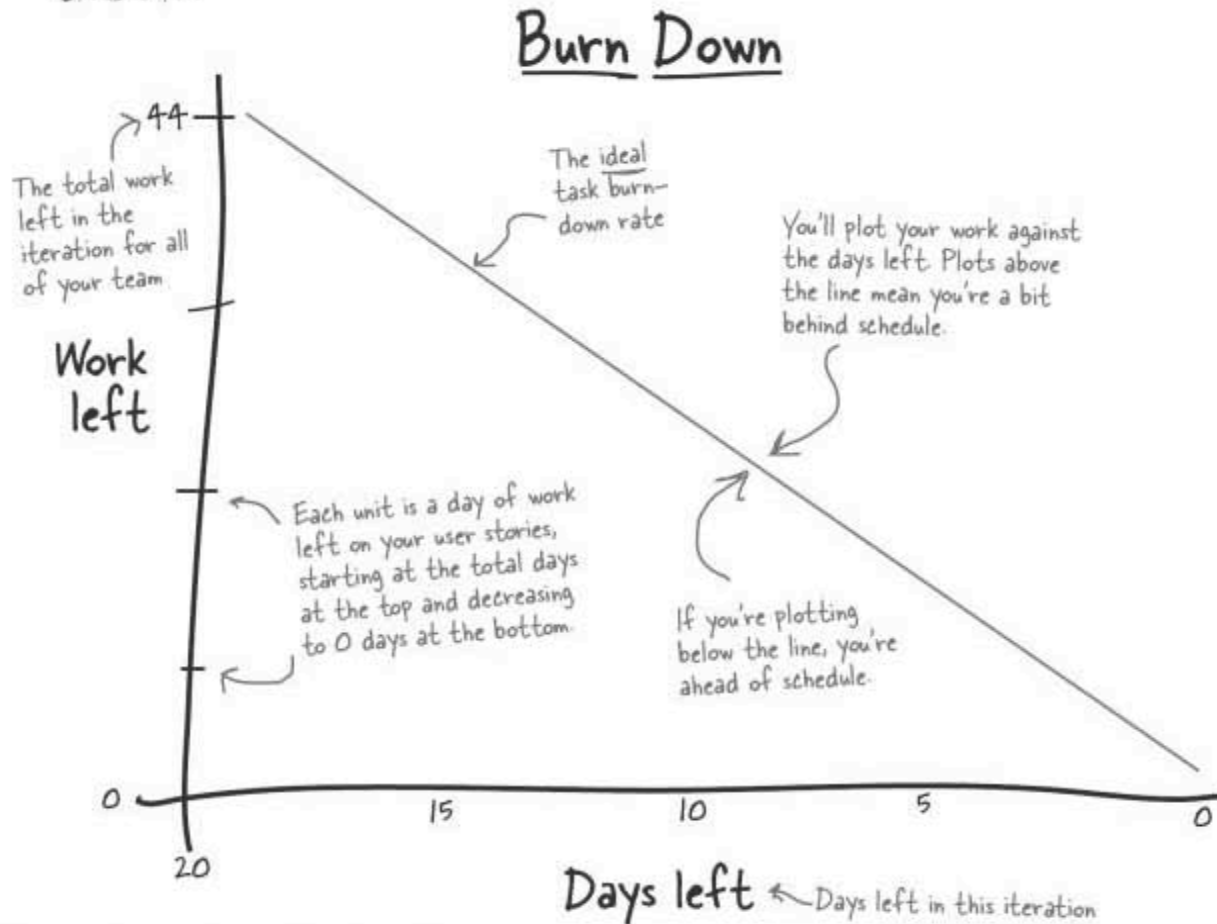 Burn Down
44
The total work
left in the
iteration for all
of your team
The ideal
task burn-
down rate
You'll plot your work against
the days left. Plots above
the line mean you're a bit
behind schedule.
Work
left
Each unit is a day of work
left on your user stories,
starting at the total days
at the top and decreasing
to 0 days at the bottom.
If you're plotting
below the line, you're
ahead of schedule.
0
15
10
5
0
20
Days left
Days left in this iteration